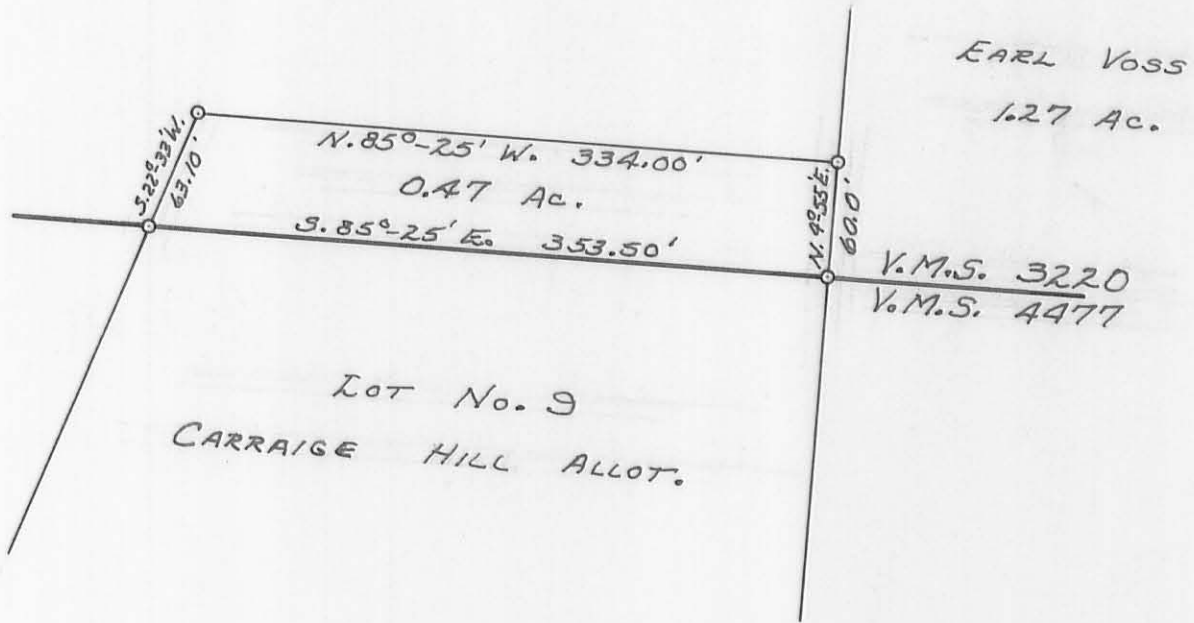 EARL VOSS
1.27 Ac.
S.22°-33'W.
63.10'
N.85°-25' W. 334.00'
0.47 Ac.
S.85°-25' E. 353.50'
N.4°-55'E.
60.0'
V.M.S. 3220
V.M.S. 4477
LOT No. 9
CARRAIGE HILL ALLOT.